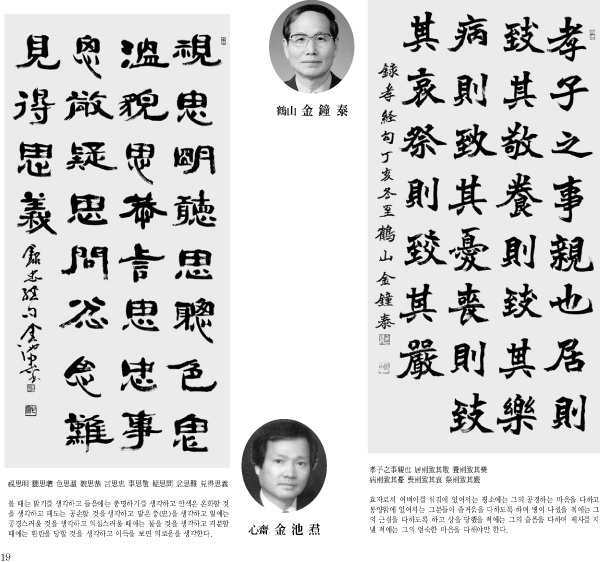 視思明聽思聰色思
溫貌思恭言思忠事
思敬疑思問忿思難
見得思義
視思明 聽思聰 色思溫 貌思恭 言思忠 事思敬 疑思問 忿思難 見得思義
볼 때는 밝기를 생각하고 들음에는 총명하기를 생각하고 안색은 온화할 것
을 생각하고 태도는 공손할 것을 생각하고 말은 충(忠)을 생각하고 일에는
공경스러울 것을 생각하고 의심스러울 때에는 물을 것을 생각하고 격분할
때에는 환란을 당할 것을 생각하고 이득을 보면 의로움을 생각한다.
鶴山 金 鐘 泰
心齋 金 池 焄
孝子之事親也居則
致其敬養則致其樂
病則致其憂喪則致
其哀祭則致其嚴
錄孝經句丁亥冬至鶴山金鐘泰
孝子之事親也 居則致其敬 養則致其樂
病則致其憂 喪則致其哀 祭則致其嚴
효자로서 어버이를 섬김에 있어서는 평소에는 그의 공경하는 마음을 다하고
봉양함에 있어서는 그분들이 즐거움을 다하도록 하며 병이 나셨을 적에는 그
의 근심을 다하도록 하고 상을 당했을 적에는 그의 슬픔을 다하며 제사를 지
낼 적에는 그의 엄숙한 마음을 다해야만 한다.
19